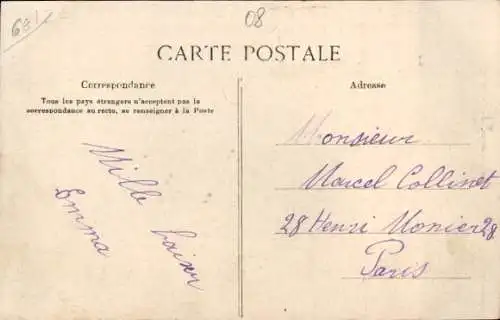 681
08
CARTE POSTALE
Correspondance
Tous les pays étrangers n'acceptent pas la
correspondance au recto, se renseigner à la Poste
Mille baiser
Emma
Adresse
Monsieur
Marcel Collinet
28 Henri Monier 28
Paris